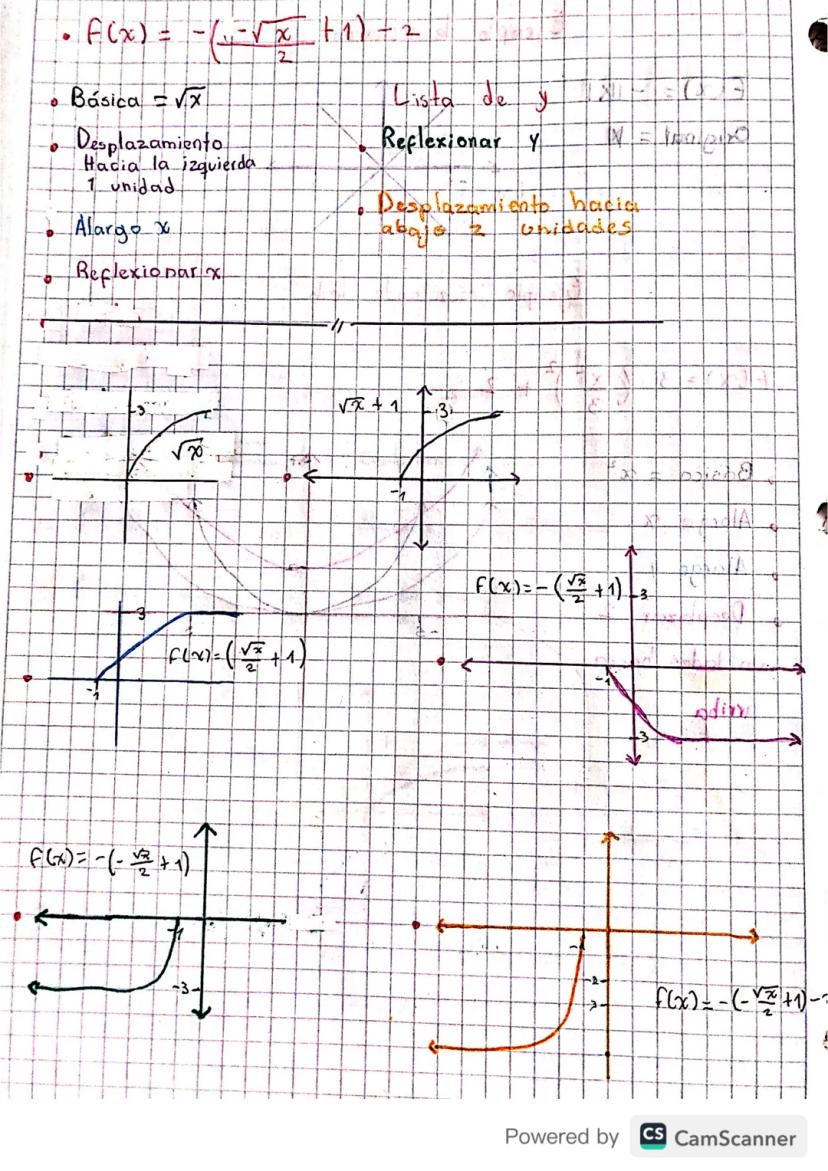 • f(x) = -(-√x/2 + 1) - 2
• Básica = √x
• Desplazamiento
Hacia la izquierda
1 unidad
• Alargo x
• Reflexionar x
Lista de y
• Reflexionar y
• Desplazamiento hacia
abajo 2 unidades
3
√x
√x + 1
3
-1
3
f(x)=(√x/2 + 1)
-1
f(x)=-(√x/2 + 1)
3
-1
-3
f(x)=-(-√x/2 + 1)
-1
-3
-1
-2
f(x)=-(-√x/2 + 1)-
Powered by CS CamScanner